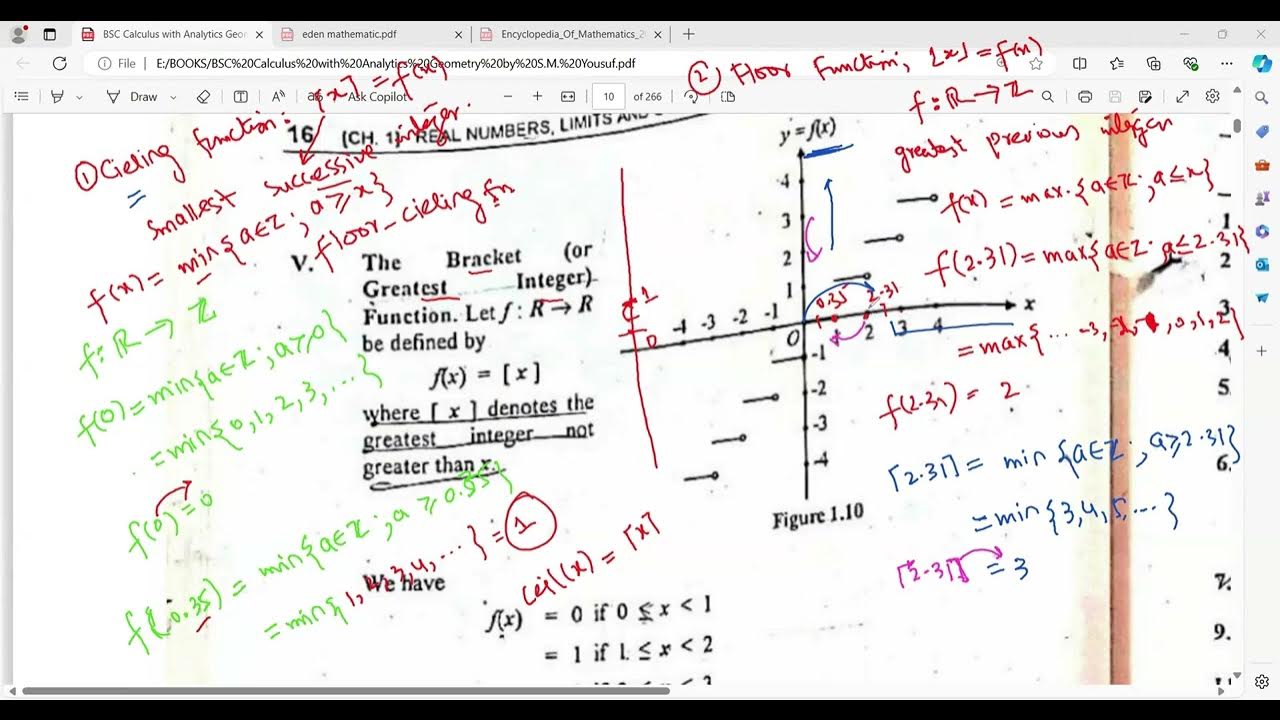 BSC Calculus with Analytics Geo
eden mathematic.pdf
Encyclopedia_Of_Mathematics_
File
E:/BOOKS/BSC%20Calculus%20with%20Analytics%20Geometry%20by%20S.M.%20Yousuf.pdf
Draw
Ask Copilot
10 of 266
16 (CH. 1) REAL NUMBERS, LIMITS AND
① Cieling function: ⌈x⌉ = f(x)
smallest successive integer.
f(x) = min{a∈Z ; a ≥ x}
f: R → Z
f(0) = min{a∈Z ; a ≥ 0}
= min{0, 1, 2, 3, ...}
f(0) = 0
f(0.35) = min{a∈Z ; a ≥ 0.35}
= min{1, 2, 3, 4, ...} = 1
floor-cieling fn
V. The Bracket (or
Greatest Integer)
Function. Let f : R → R
be defined by
f(x) = [ x ]
where [ x ] denotes the
greatest integer not
greater than x.
We have
ceil(x) = ⌈x⌉
f(x) = 0 if 0 ≤ x < 1
= 1 if 1 ≤ x < 2
y = f(x)
4
3
2
1
-4 -3 -2 -1
O
1
0
0.35
2.31
2 3 4
x
-1
-2
-3
-4
Figure 1.10
② Floor Function; ⌊x⌋ = f(x)
f: R → Z
greatest previous integer
f(x) = max{a∈Z ; a ≤ x}
f(2.31) = max{a∈Z ; a ≤ 2.31}
= max{... -3, -2, -1, 0, 1, 2}
f(2.31) = 2
⌈2.31⌉ = min{a∈Z ; a ≥ 2.31}
= min{3, 4, 5, ...}
⌈2.31⌉ = 3
1
2
3
4
5.
6.
7.
9.